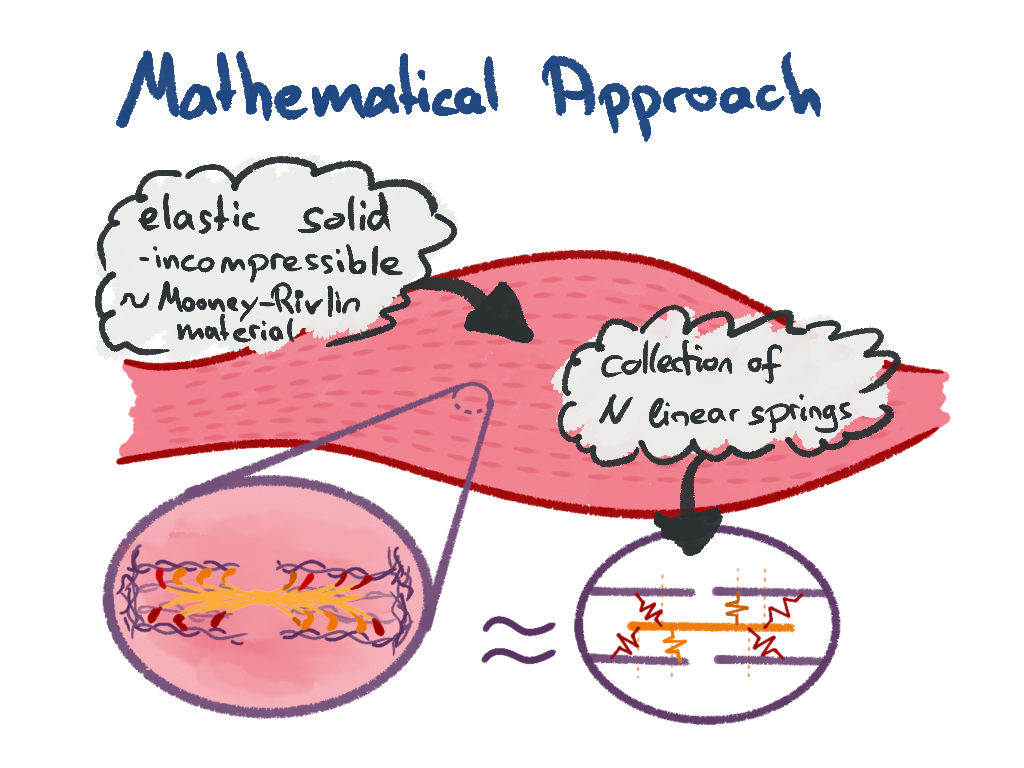 Mathematical Approach
elastic solid
-incompressible
~ Mooney-Rivlin
material
collection of
N linear springs
≈